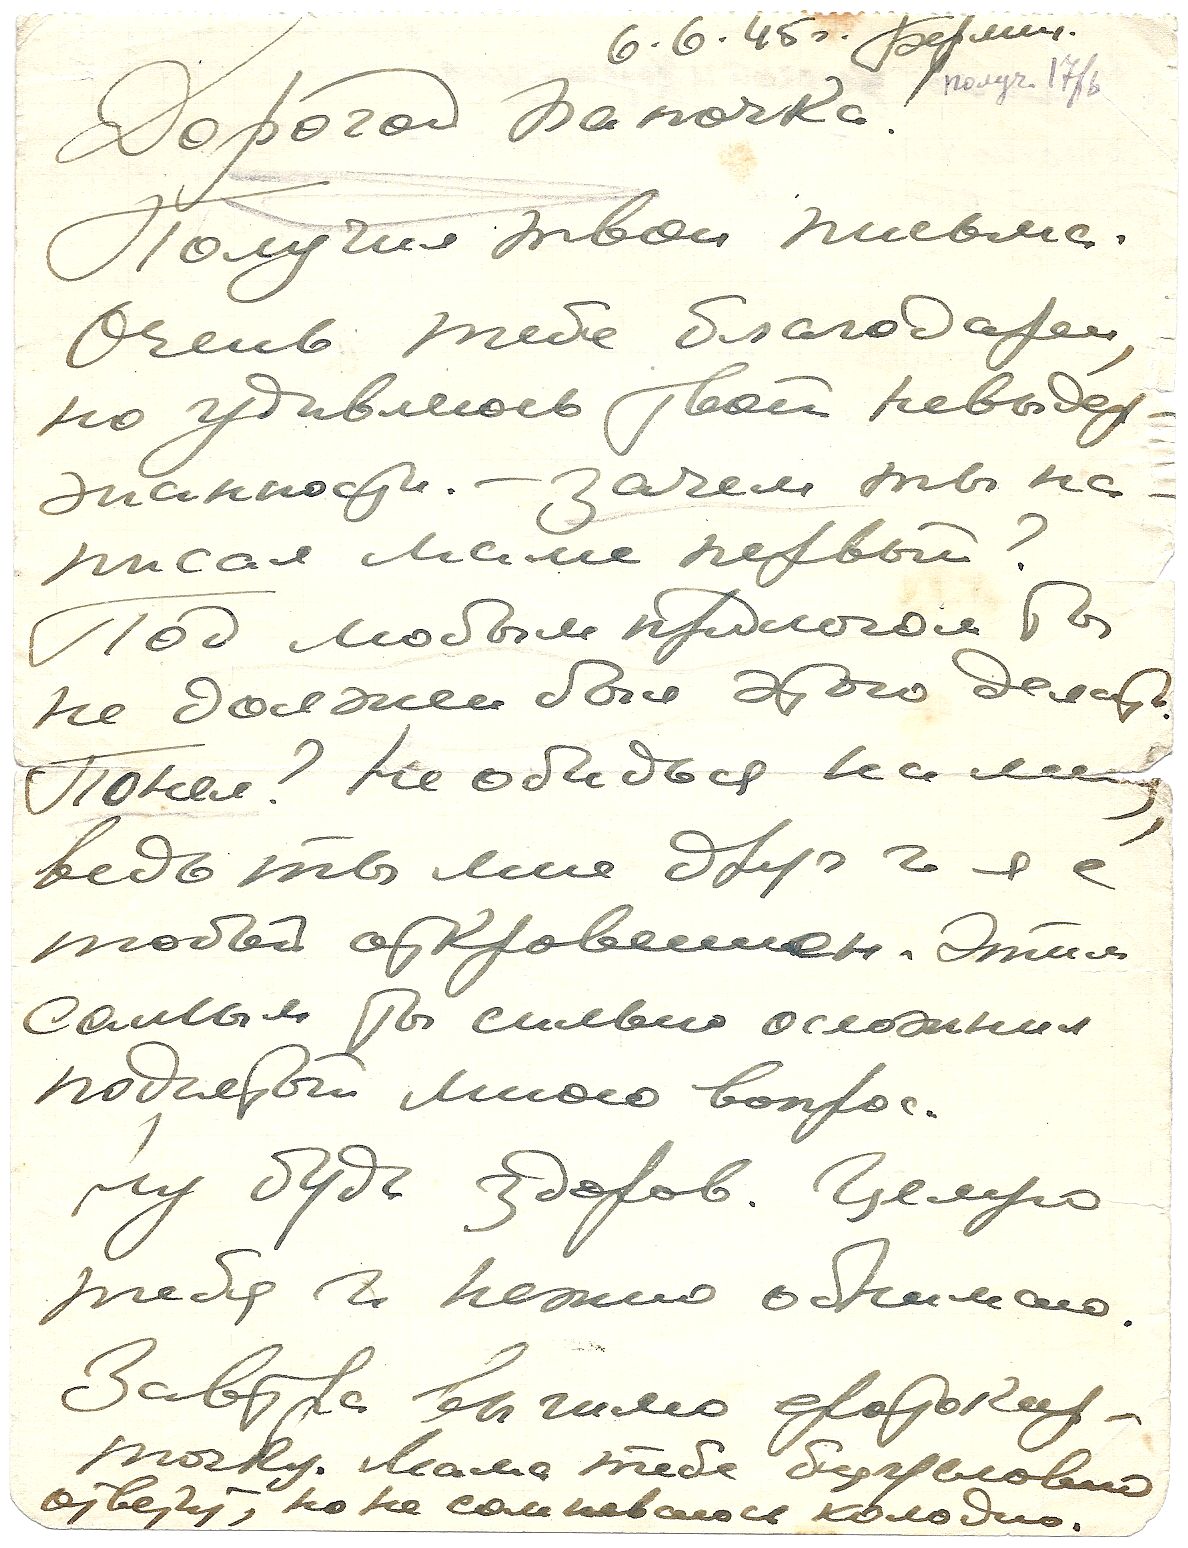 6.6.45г. Берлин.
получ. 17/6
Дорогой папочка!
Получил твои письма.
Очень тебе благодарен,
но удивляюсь твоей невыдер-
жанности. – Зачем ты на-
писал маме первый?
Под любым предлогом ты
не должен был этого делать.
Понял? Не обидься на меня,
ведь ты мне друг и я с
тобой откровенен. Этим
самым ты сильно осложнил
поднятый мною вопрос.
Ну будь здоров. Целую
тебя и нежно обнимаю.
Завтра вышлю фотокар-
точку. Мама тебе безусловно
ответит, но не сомневаюсь холодно.